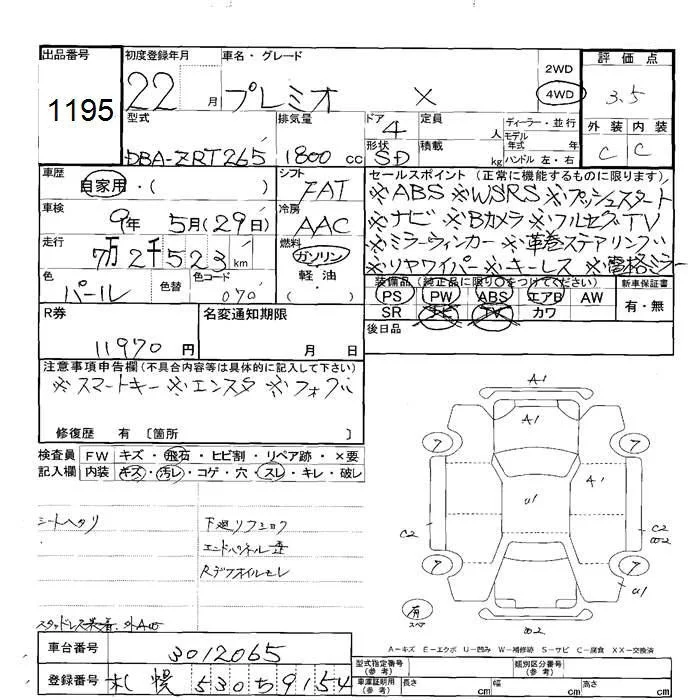 出品番号 初度登録年月 車名・グレード 2WD 評価点
1195 22 月 プレミオ X 4WD 3.5
型式 排気量 ドア 定員 ディーラー・並行 外装 内装
4 人 モデル年式 年式
DBA-ZRT265 1800 cc 形状 SD 積載 kg ハンドル 左・右 C C
車歴 シフト セールスポイント(正常に機能するものに限ります)
自家用・( ) FAT ※ABS ※WSRS ※プッシュスタート
車検 9年 5月(29日) 冷房 AAC ※ナビ ※Bカメラ ※フルセグTV
走行 7万2千523km 燃料 ガソリン ※ミラーウィンカー ※革巻ステアリング
色 色替 色コード 軽油 ※リヤワイパー ※キーレス ※電格ミラー
パール 070 ( ) 装備品(純正品に限り○をつけてください) 新車保証書
PS PW ABS エアB AW 有・無
R券 名変通知期限 SR ナビ TV カワ
11970円 月 日 後日品
注意事項申告欄(不具合内容等は具体的に記入して下さい)
※スマートキー ※エンスタ ※フォグ
修復歴 有 〔箇所 〕
検査員 FW キズ・飛石・ヒビ割・リペア跡・×要
記入欄 内装 キズ・汚レ・コゲ・穴・スレ・キレ・破レ
A1
A1
7 7
A1
U1
C2 C2
W2
7 7
U1
有
スペア
W2
シートヘタリ 下廻リフミョク
エンドパネル歪
Rデフオイルモレ
スタッドレス装着 外AW
A-キズ E-エクボ U-凹み W-補修跡 S-サビ C-腐食 XX-交換済
車台番号 3012065 型式指定番号(参考) 類別区分番号(参考)
登録番号 札幌 530ち9154 車庫証明用(参考) 長さ cm 幅 cm 高さ cm